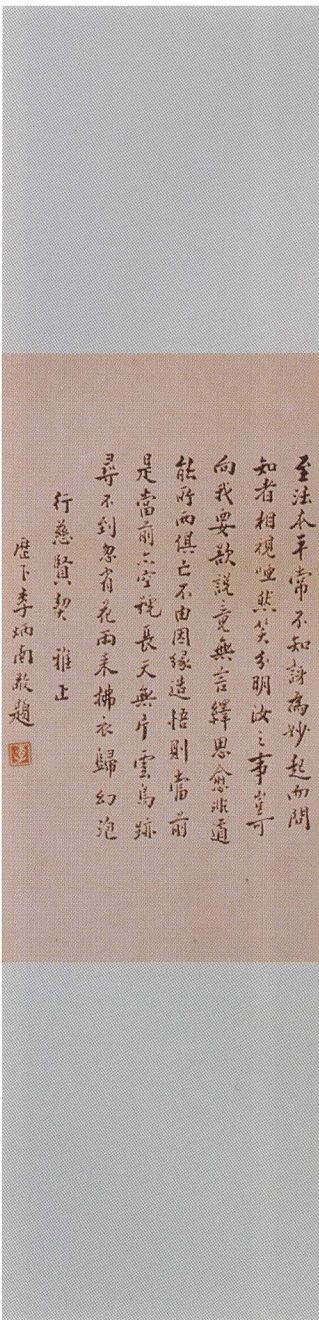 至法本平常不知詡為妙起而問
知者相視啞然笑分明汝之事豈可
向我要欲說竟無言繹思愈非道
能所兩俱亡不由因緣造悟則當前
是當前六空視長天無片雲鳥跡
尋不到忽有花雨来拂衣歸幻泡
行慈賢契 雅正
歷下李炳南敬題